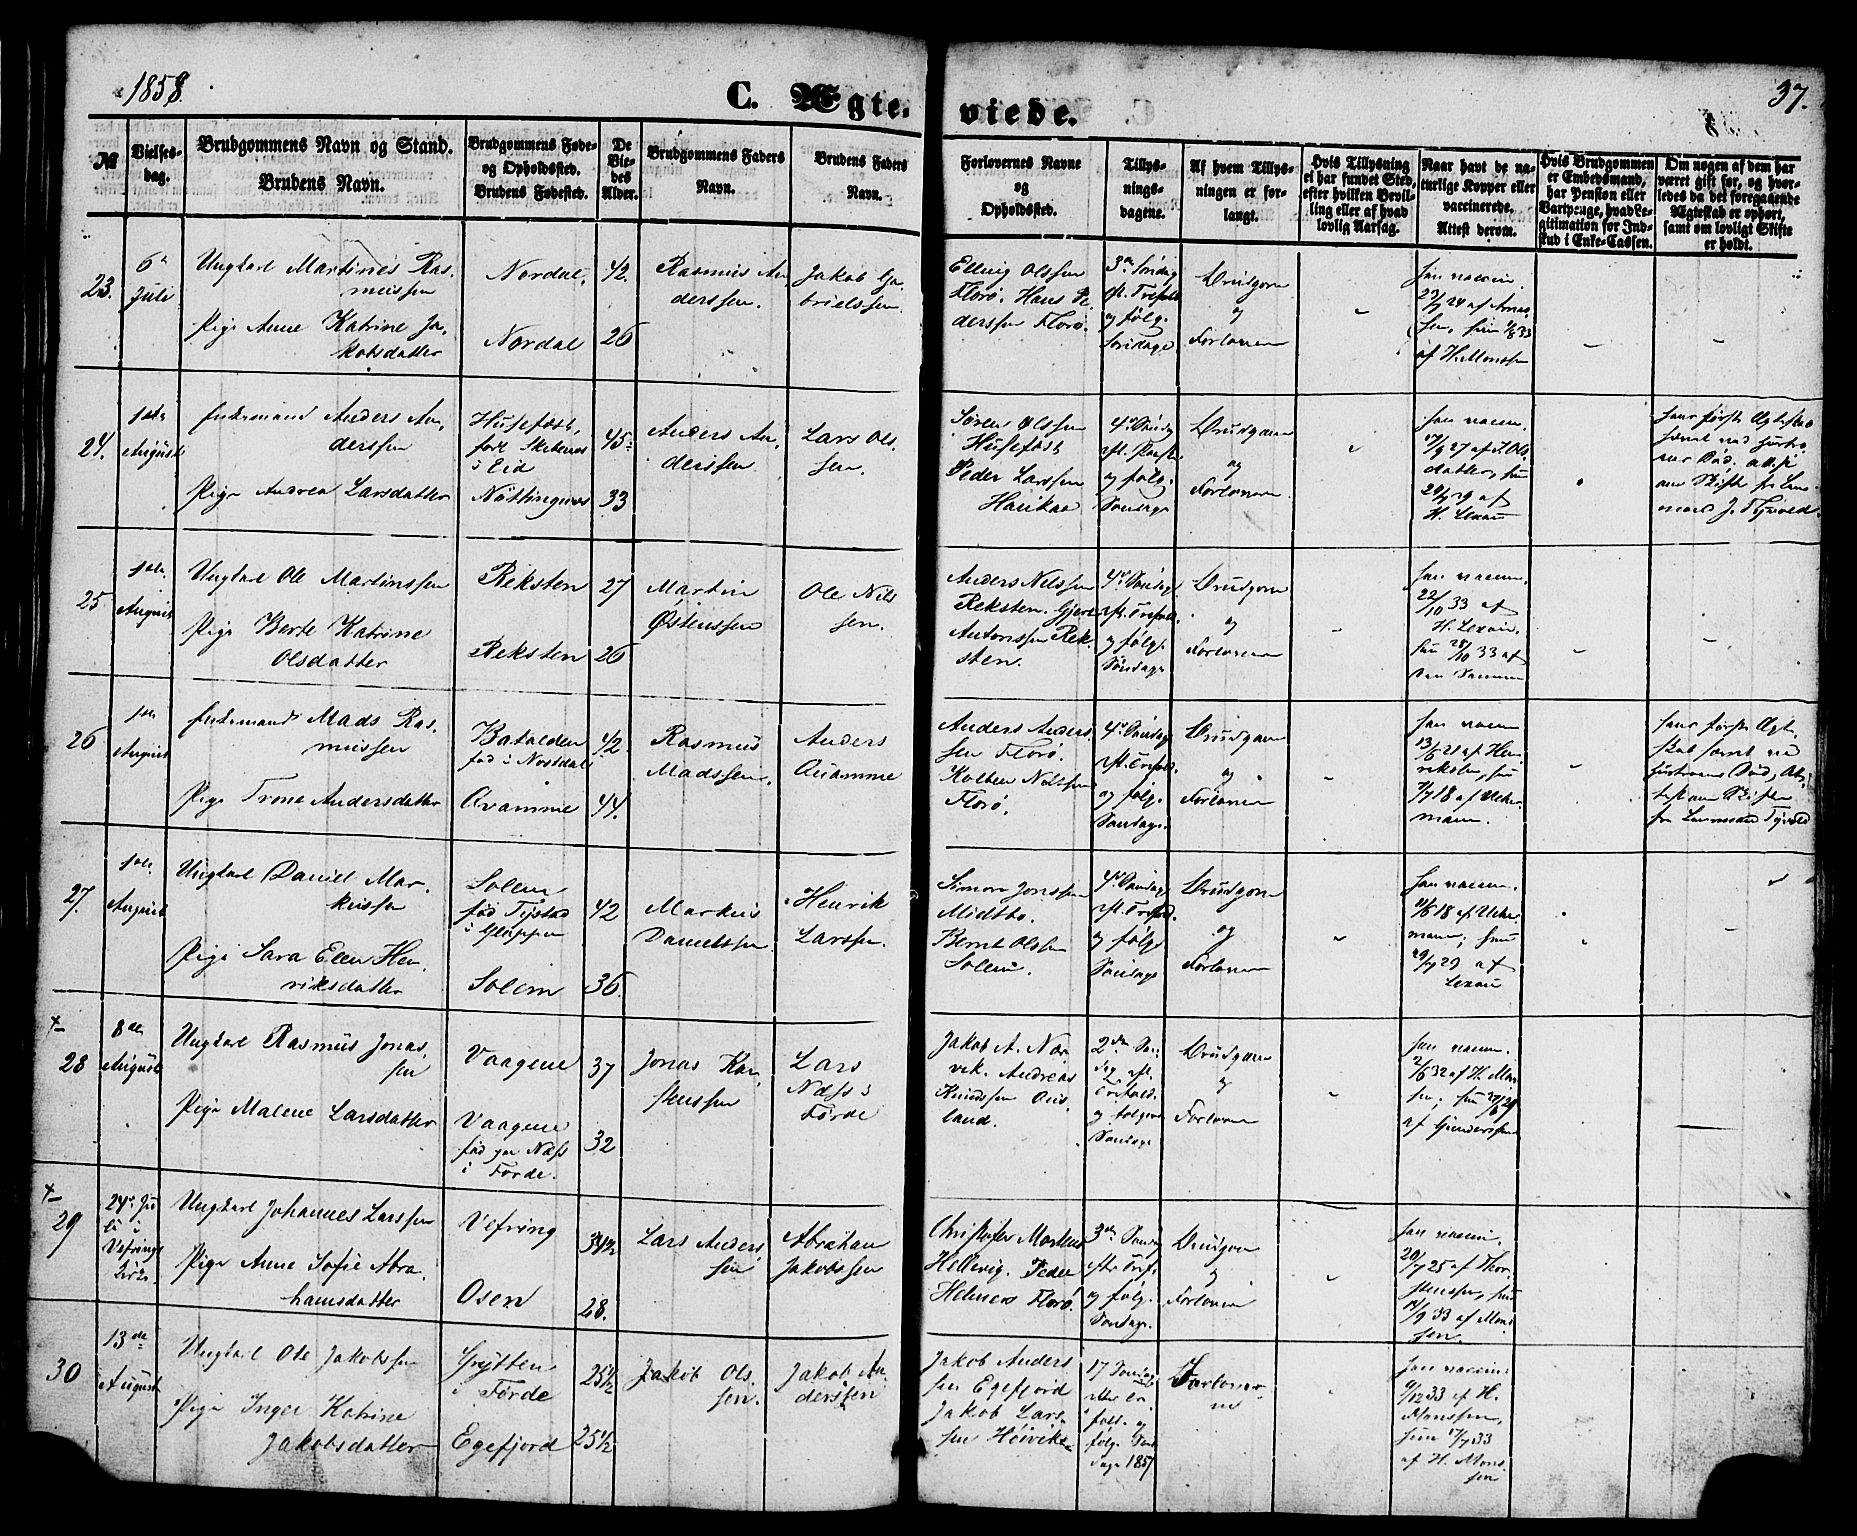 1858.
C. Ægte-
viede.
37.
№
Vielses-
dag.
Brudgommens Navn og Stand.
Brudens Navn.
Brudgommens Føde-
og Opholdssted.
Brudens Fødested.
De
Vie-
des
Alder.
Brudgommens Faders
Navn.
Brudens Faders
Navn.
Forlovernes Navne
og
Opholdssted.
Tillys-
nings-
dagene.
Af hvem Tillys-
ningen er for-
langt.
Hvis Tillysning
ei har fundet Sted,
efter hvilken Bevil-
ling eller af hvad
lovlig Aarsag.
Naar havt de na-
turlige Kopper eller
vaccinerede.
Attest derom.
Hvis Brudgommen
er Embedsmand,
har Pension eller
Vartpenge, hvad Le-
gitimation for Ind-
skud i Enke-Cassen.
Om nogen af dem har
været gift før, og hvor-
ledes da det foregaaende
Ægteskab er ophørt,
samt om lovligt Skifte
er holdt.
23.
6te
Juli
Ungkarl Martines Ras-
mussen
Pige Anne Katrine Ja-
kobsdatter
Nordal,
Nordal
42.
26
Rasmus An-
derssen.
Jakob Ga-
brielssen
Elling Olssen
Florø. Hans Pe-
derssen Florø.
3die Søndag
eft. Trefold.
og følg.
Søndage
Brudgom
og
Forlovere
han vaccin.
af H. Monssen
24.
1ste
August
Enkemand Anders An-
derssen
Pige Andrea Larsdatter
Husefæst,
i Eid
Nøttingnes
45
33
Anders An-
derssen.
Lars Ols-
sen.
Søren Olssen
Husefæst
Peder Larssen
Haukaa
og følg.
Søndage
Brudgom
og
Forlovere.
han vaccin.
17/9 27 af J. Ols-
datter, hun
29/7 29 af
H. Lexau
25
1ste
August
Ungkarl Ole Martinssen
Pige Berte Katrine
Olsdatter
Reksten
Reksten
27
26
Martin
Østenssen
Ole Nils-
sen.
Anders Nilssen
Reksten. Gjert
Antonssen Rek-
sten.
4de Søndag
eft. Trefold.
og følg.
Søndage
Brudgom
og
Forlovere
han vaccin.
22/10 33 af
H. Lexau,
hun 28/10 33 af
den Samme
26
1ste
August
Enkemand Mads Ras-
mussen
Pige Trone Andersdatter
Batalden
fød i Norddal
Avamme
42
44.
Rasmus
Madssen.
Anders
Avamme
Anders Anders-
sen Florø.
Kolben Nilssen
Florø.
4de Søndag
eft. Trefold.
og følg.
Søndage.
Brudgom
og
Forlovere
han vaccin
13/6 21 af Hen-
riksen, hun
7/7 18 af Ucher-
mann.
27.
1ste
August
Ungkarl Daniel Mar-
kussen
Pige Sara Ellen Hen-
riksdatter
Solem
fød Tystad
i Gloppen
Solem
42
36.
Markus
Danielssen.
Henrik
Larssen.
Simon Jonssen
Midtbø.
Bernt Olssen
Solem.
4de Søndag
eft. Trefold.
og følg.
Søndage
Brudgom
og
Forlovere
han vaccin.
11/6 18 af Ucher-
mann; hun
29/7 29 af
Lexau
28
8de
August
Ungkarl Rasmus Jonas-
sen
Pige Malene Larsdatter
Vaagene
Vaagene
fød paa Næss
i Førde.
37
32
Jonas Kar-
stenssen
Lars
Næss i
Førde
Jakob A. Nor-
vik. Andreas
Knudssen Aus-
land.
2den Søn-
dag eft.
Trefold.
og følgende
Søndage
Brudgom
og
Forlovere
han vaccin.
af Gunderssen
29
24de Ju-
li i
Vefrings
Kirke.
Ungkarl Johannes Larssen
Pige Anne Sofie Abra-
hamsdatter
Vefring
Osen
28.
Lars Anders-
sen
Abraham
Jakobssen
Christofer Mortens
Hellevig. Peder
Helmers Florø.
3die Søndag
efter Tref.
og følg.
Søndage.
Brudgom
og
Forlovere
han vaccin.
20/7 25 af Thor-
stenssen, hun
14/9 33 af Mons-
sen.
30
13de
August
Ungkarl Ole Jakobssen
Pige Inger Katrine
Jakobsdatter
Grytten
i Førde
Egefjord
25 1/2
25 1/2
Jakob Ols-
sen.
Jakob An-
derssen
Jakob Anders-
sen Egefjord
Jakob Lars-
sen Høivik
17 Søndag
efter Tre-
fold. og
følg. Søn-
dage 1857
Forlover-
ne
han vaccin.
9/12 33 af H.
Monssen,
hun 17/7 33
af H. Mons-
sen